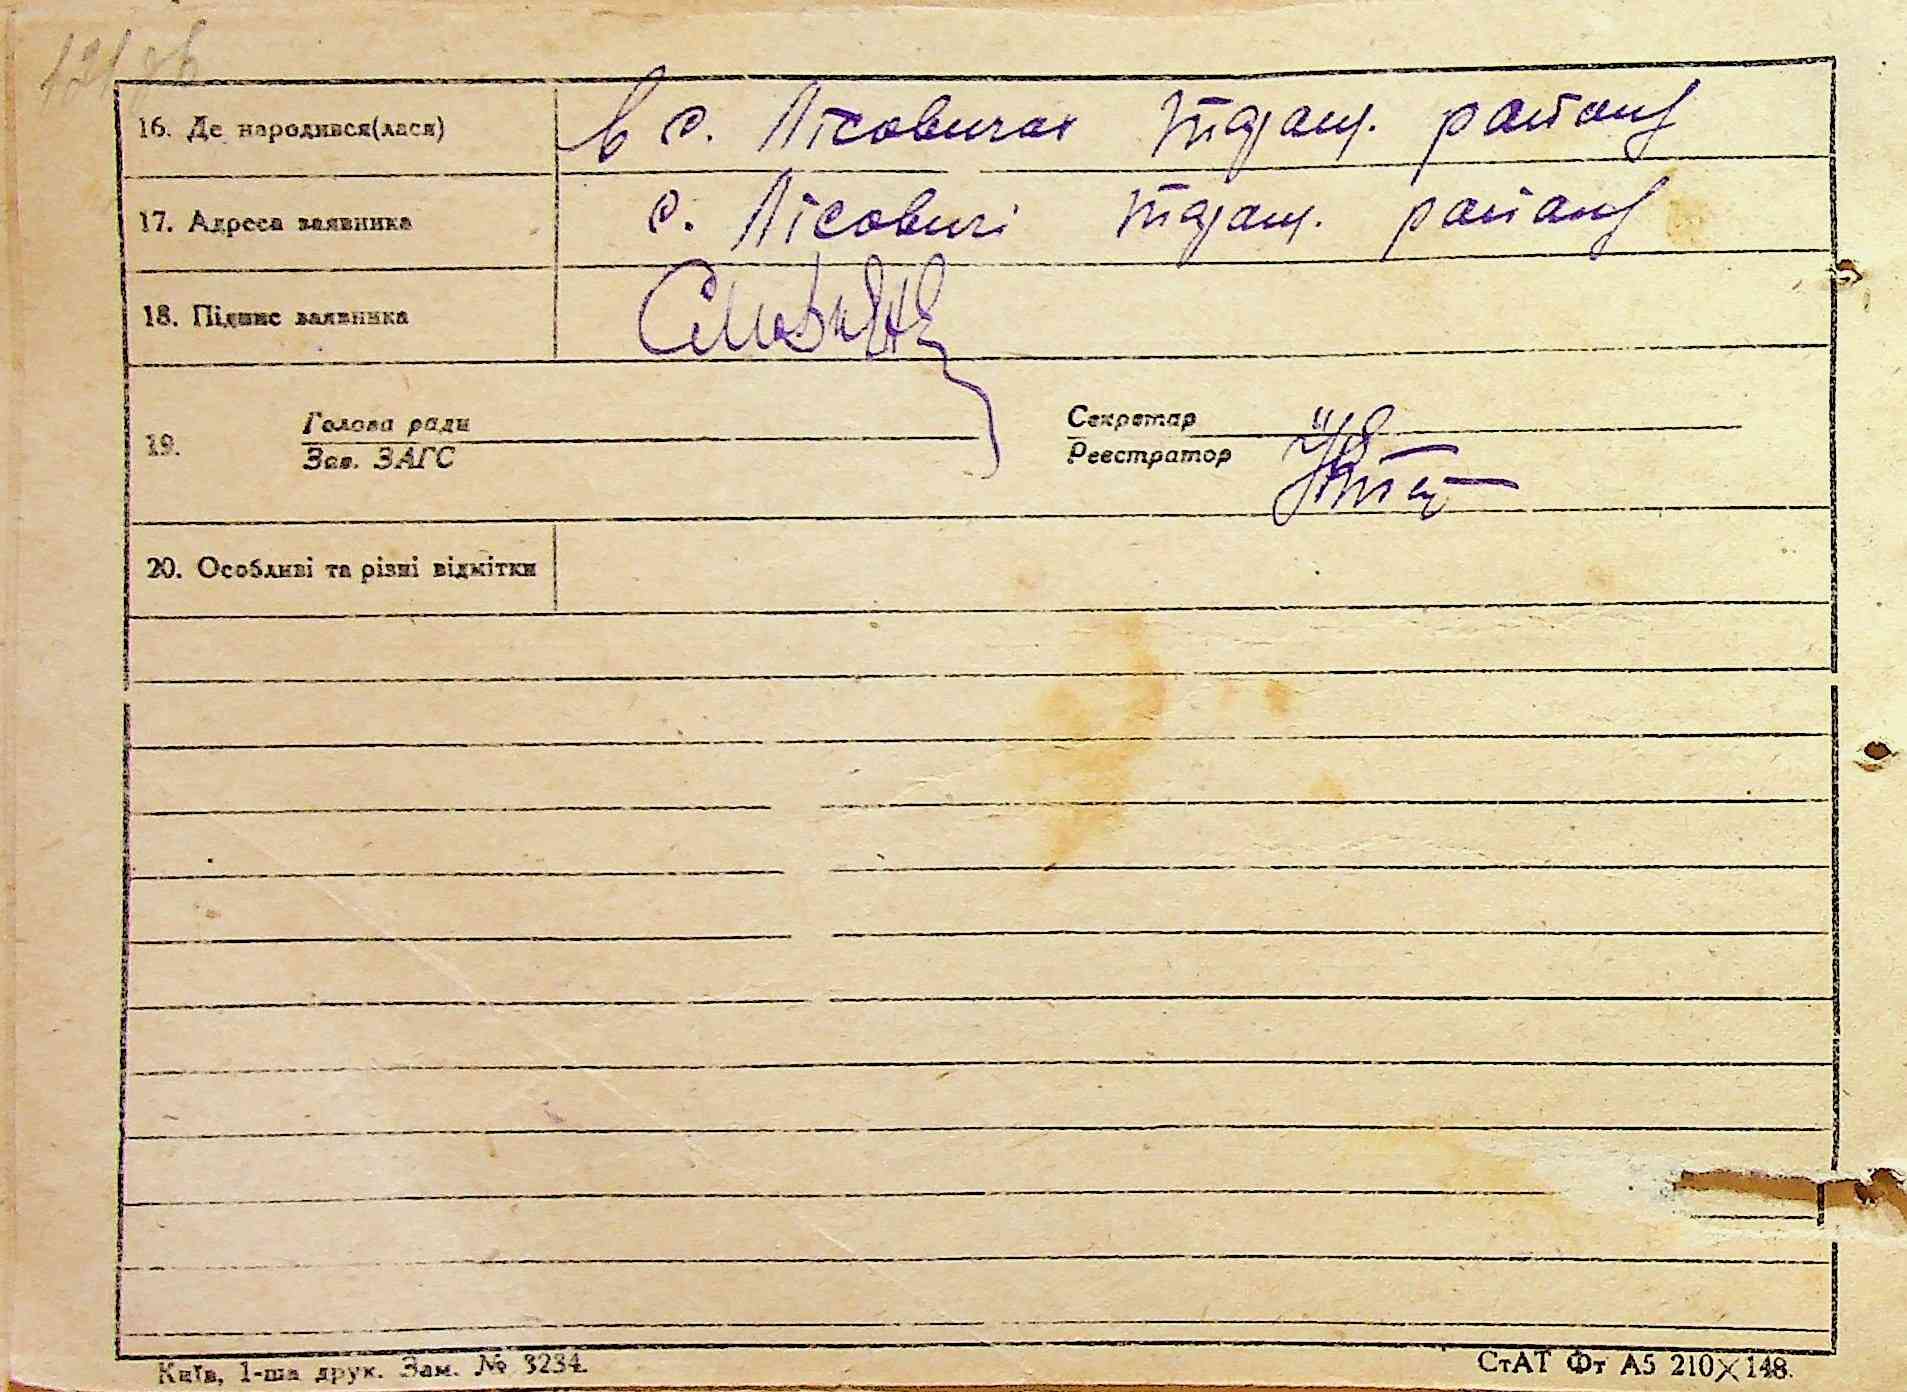 16. Де народився(лася) в с. Лісовичах Таращ. району
17. Адреса заявника с. Лісовичі Таращ. району
18. Підпис заявника
19. Голова ради Секретар
Зав. ЗАГС Реєстратор
20. Особливі та різні відмітки
Київ, 1-ша друк. Зам. № 3234. СтАТ Фт А5 210×148.